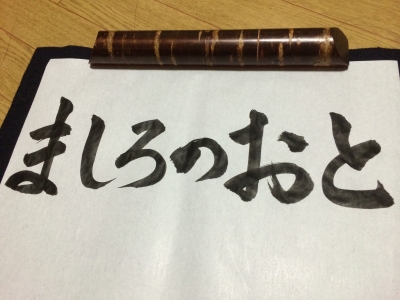 ましろのおと